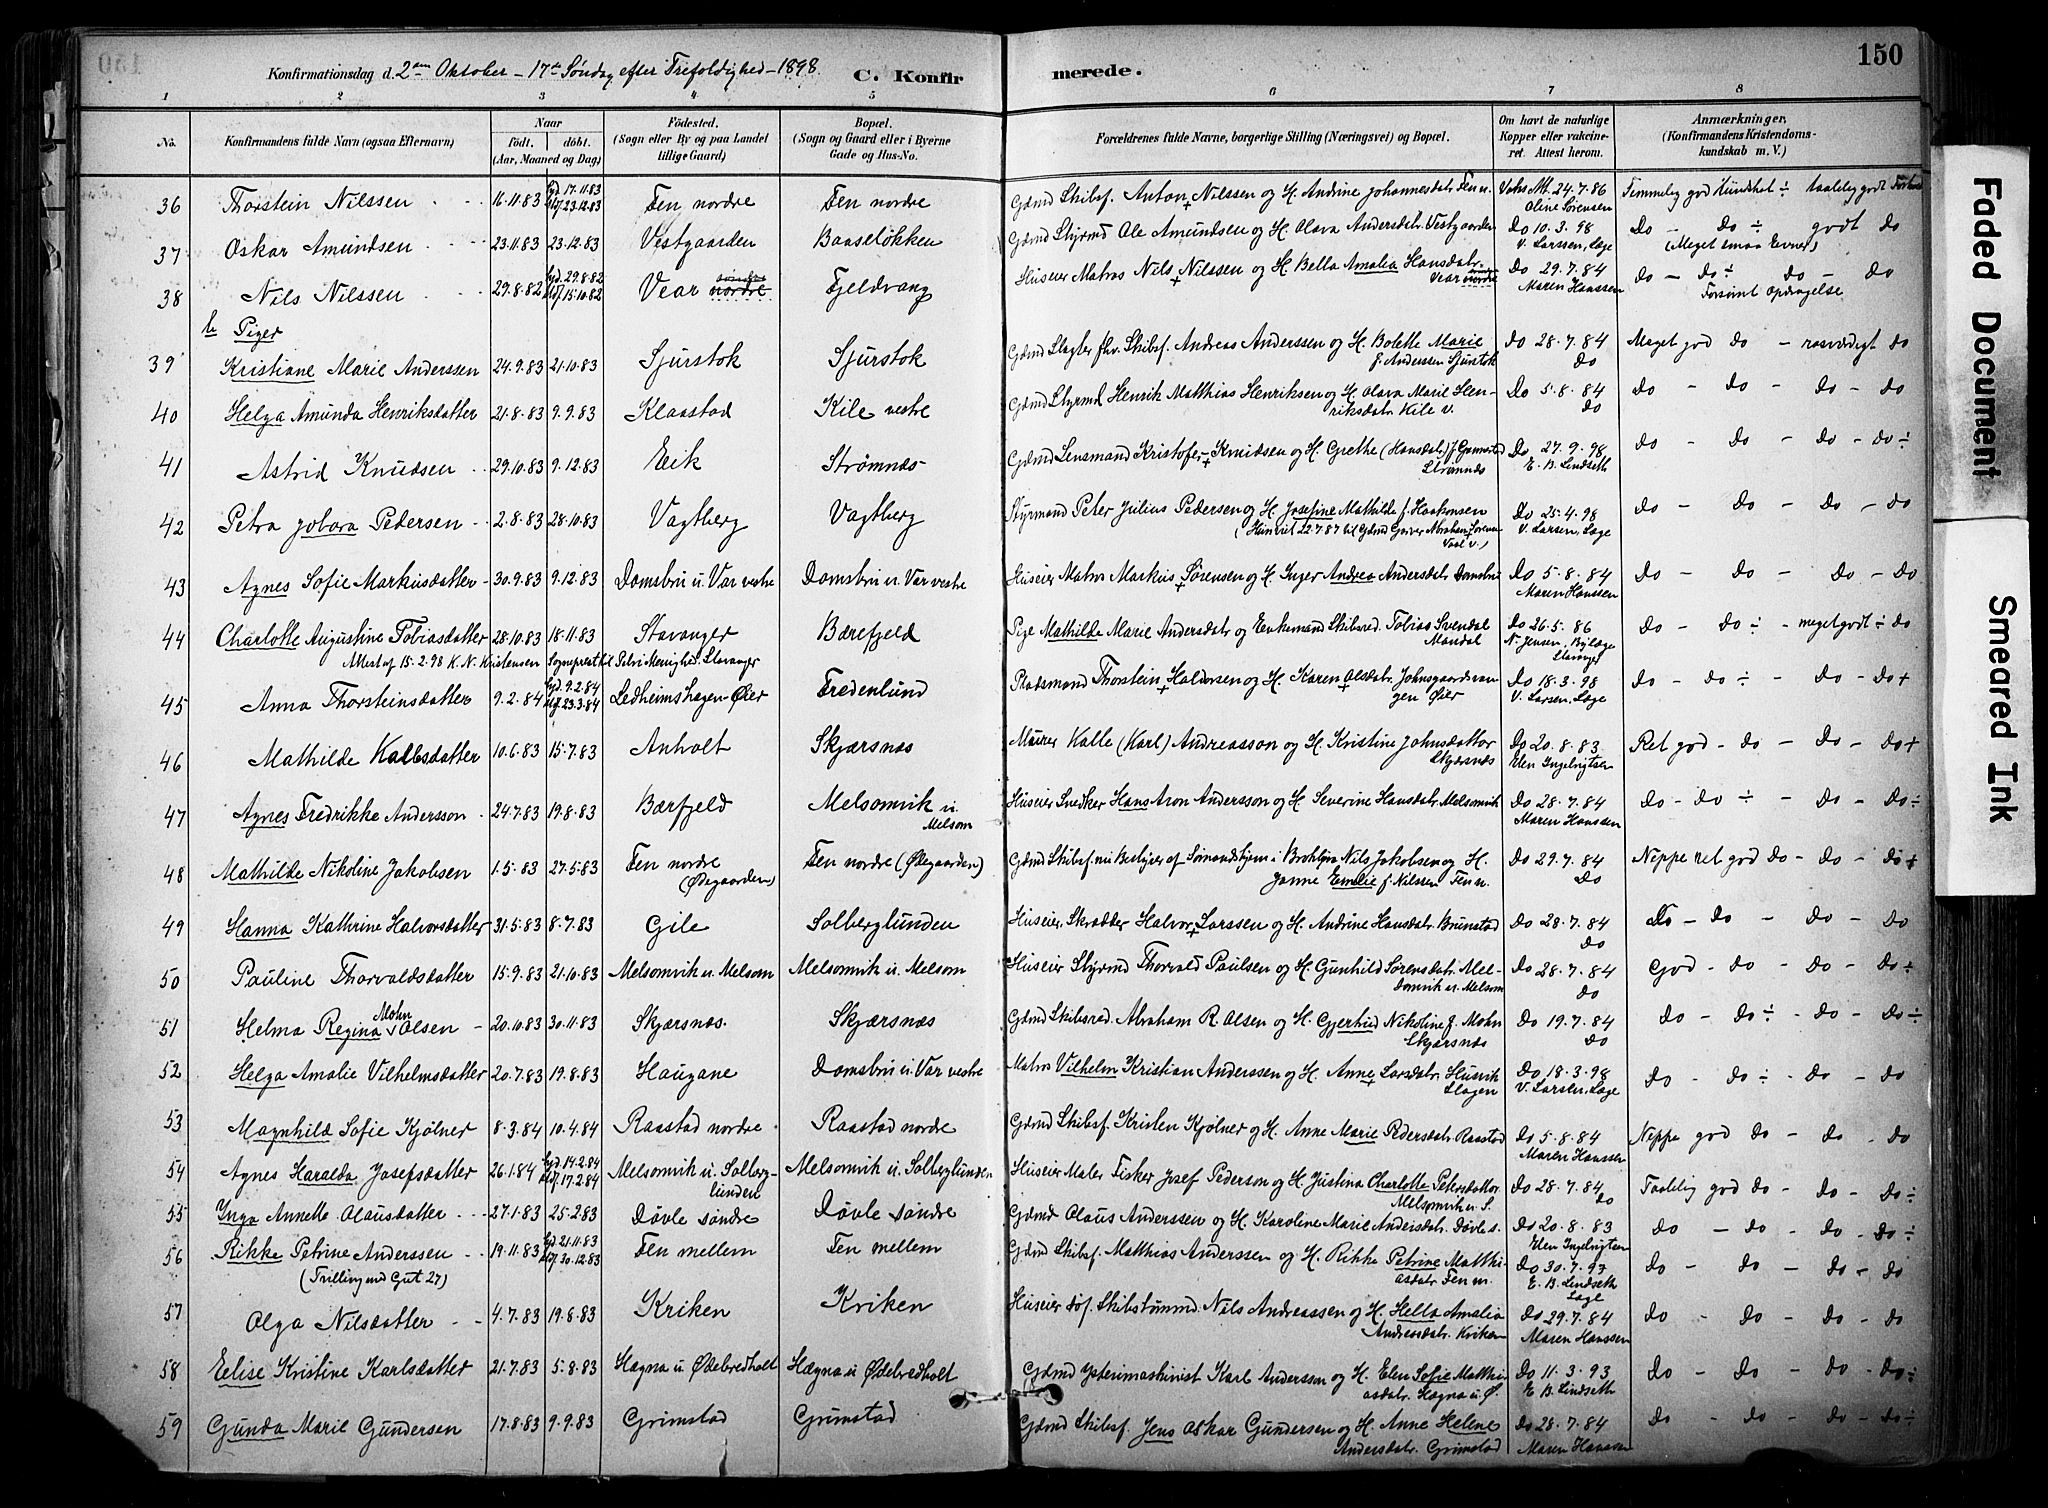 150
Konfirmationsdag d. 2den Oktober - 17de Søndag efter Trefoldighed - 1898.
C. Konfirmerede.
1 2 3 4 5 6 7 8
No.
Konfirmandens fulde Navn (ogsaa Efternavn)
Naar
født. døbt.
(Aar, Maaned og Dag)
Fødested.
(Sogn eller By og paa Landet
tillige Gaard)
Bopæl.
(Sogn og Gaard eller i Byerne
Gade og Hus-No.
Forældrenes fulde Navne, borgerlige Stilling (Næringsvei) og Bopæl.
Om havt de naturlige
Kopper eller vakcine-
ret. Attest herom.
Anmærkninger,
(Konfirmandens Kristendoms-
kundskab m. V.)
36 Thorstein Nilssen 16.11.83 17.11.83 23.12.83 Fen nordre Fen nordre Gdmd Skibsf. Anton + Nilssen og H. Andrine Johannesdatr Fen n. 24.7.86 Oline Sørensen Temmelig god Kundskab ÷ taalelig godt Forhold
37 Oskar Amundsen 23.11.83 23.12.83 Vestgaarden Baaseløkken Gdmd Styrmd Ole Amundsen og H. Olava Andersdatr. Vestgaarden Do 10.3.98 V. Larssen, Læge Do - Do ÷ godt Do
(Meget smaa Evner)
38 Nils Nilssen 29.8.82 29.8.82 15.10.82 Vear nordre Fjeldvang Huseier Matros Nils + Nilssen og H. Bella Amalia Hansdatr. Vear Do 29.7.84 Maren Hanssen do - do ÷ do - do
Forsømt Opdragelse
b Piger
39 Kristiane Marie Anderssen 24.9.83 21.10.83 Sjurstok Sjurstok Gdmd Slagter fhv. Skibsf. Andreas Anderssen og H. Bolette Marie f. Anderssen Sjurstok Do 28.7.84 Do Meget god do - rosværdigt do
40 Helga Amunda Henriksdatter 21.8.83 9.9.83 Klaastad Kile vestre Gdmd Styrmd Henrik Matthias Henriksen og H. Olava Marie Hen-
riksdatr. Kile v. Do 5.8.84 Do do - do - do - do
41 Astrid Knudsen 29.10.83 9.12.83 Eik Strømnæs Gdmd Lensmand Kristofer + Knudsen og H. Grethe (Hansdatr) f. Grimstad Strømnæs Do 27.9.98 E. B. Lindseth do - do - do - do ÷
42 Petra Jobara Pedersen 2.8.83 28.10.83 Vagtberg Vagtberg Styrmand Peter Julius Pedersen og H. Josefine Mathilde f. Haakonsen Do 25.4.98 V. Larsen, Læge do - do - do - do
43 Agnes Sofie Markusdatter 30.9.83 9.12.83 Domsbru u. Var vestre Domsbru u. Var vestre Huseier Matros Markus + Sørensen og H. Inger Andrea Andersdatr. Domsbru Do 5.8.84 Maren Hanssen Do - do - do - do
44 Charlotte Augustine Tobiasdatter 28.10.83 18.11.83 Stavanger Bærefjeld Pige Mathilde Marie Andersdatr og Enkemand Skibsred. Tobias Svendal Mandal Do 26.5.86 N. Jensen, Bylæge Stavanger do - do ÷ - meget godt ÷ do
Attest af 15.2.98 K. N. Kristensen Sogneprest til Petri Menighed. Stavanger
45 Anna Thorsteinsdatter 9.2.84 9.2.84 23.3.84 Ledheimshagen - Øier Fredenlund Pladsmand Thorstein + Haldorsen og H. Karen + Olsdatr. Johnsgaardvan-
gen Øier Do 18.3.98 V. Larsen, Læge do - do ÷ - do - do +
46 Mathilde Kallesdatter 10.6.83 15.7.83 Anholt Skjærsnæs Murer Kalle (Karl) Andreasson og H. Kristine Johnsdatter Skjærsnæs Do 20.8.83 Elen Ingebrigtsen Ret god - do - do - do +
47 Agnes Fredrikke Andersson 24.7.83 19.8.83 Bærfjeld Melsomvik u. Melsom Huseier Snedker Hans Aron Andersson og H. Severine Hansdatr. Melsomvik Do 28.7.84 Maren Hanssen do - do ÷ - do - do ÷
48 Mathilde Nikoline Jakobsen 1.5.83 27.5.83 Fen nordre (Ødegaarden) Fen nordre (Ødegaarden) Gdmd Skibsf. nu Bestyrer af Sømandshjem i Brooklyn Nils Jakobsen og H. Janne Emelie f. Nilssen Fen n. Do 29.7.84 Do Neppe ret god do - do - do +
49 Hanna Kathrine Halvorsdatter 31.5.83 8.7.83 Gile Solberglunden Huseier, Skrædder Halvor + Larssen og H. Andrine Hansdatr. Brunstad Do 28.7.84 Do Do - do - do - do
50 Pauline Thorvaldsdatter 15.9.83 21.10.83 Melsomvik u. Melsom Melsomvik u. Melsom Huseier Styrmd Thorvald Paulsen og H. Gunhild Sørensdatr. Mel-
somvik u. Melsom Do 28.7.84 Do God - do - do - do ÷
51 Helma Regina Mohn Olsen 20.10.83 30.11.83 Skjærsnæs. Skjærsnæs Gdmd Skibsred. Abraham R. Olsen og H. Gjerhud Nikoline f. Mohn Skjærsnæs Do 19.7.84 Do do - do ÷ - do - do ÷
52 Helga Amalie Vilhelmsdatter 20.7.83 19.8.83 Haugane Domsbru u. Var vestre Matros Vilhelm Kristian Anderssen og H. Anne + Larsdatr. Husvik Slagen Do 18.3.98 V. Larsen, Læge do - do ÷ - do - do
53 Magnhild Sofie Kjølner 8.3.84 10.4.84 Raastad nordre Raastad nordre Gdmd Skibsf. Kristen Kjølner og H. Anne Marie Pedersdatr. Raastad Do 5.8.84 Maren Hanssen Neppe god do - do - do
54 Agnes Haralda Josefsdatter 26.1.84 14.2.84 17.2.84 Melsomvik u. Solberg-
lunden Melsomvik u. Solberglunden Huseier Maler Fisker Josef Pederson og H. Justina Charlotte Petersdatter Melsomvik u. S. Do 28.7.84 Do Taalelig god do - do - do ÷
55 Inga Annette Olausdatter 27.1.83 25.2.83 Døvle søndre Døvle søndre Gdmd Olaus Anderssen og H. Karoline Marie Andersdatr. Døvle s. Do 20.8.83 Elen Ingebrigtsen do - do - do - do ÷
56 Rikke Petrine Anderssen 19.11.83 21.11.83 30.12.83 Fen mellem Fen mellem Gdmd Skibsf. Matthias Anderssen og H. Rikke Petrine Matthi-
asdatr. Fen m. Do 30.7.97 E. B. Lindseth Læge do - do - do - do
(Trilling med Gut 27)
57 Olga Nilsdatter 4.7.83 19.8.83 Kriken Kriken Huseier Skibstømmd. Nils Andreassen og H. Hella Amalia Andreasdatr. Kriken Do 29.7.84 Maren Hanssen do - do - do - do
58 Eelise Kristine Karlsdatter 21.7.83 5.8.83 Hægna u Ødebredholt Hægna u Ødebredholt Gdmd Ysterimaskinist Karl Anderssen og H. Elen Sofie Matthi-
asdatr. Hægna u. Ø. Do 11.3.93 E. B. Lindseth do - do - do - do ÷
59 Gunda Marie Gundersen 17.8.83 9.9.83 Grimstad Grimstad Gdmd Skibsf. Jens Oskar Gundersen og H. Anne Helene Andersdatr. Grimstad Do 28.7.84 Maren Hanssen do - do - do - do ÷
Faded Document
Smeared Ink